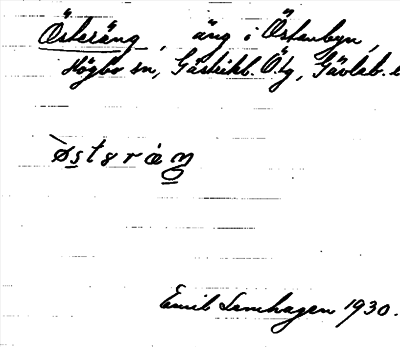 Österäng, äng i Östanbyn,
Högbo sn, Gästrikl. Ö. tg, Gävleb. l
`østeräŋ
Emil Lenhagen 1930.